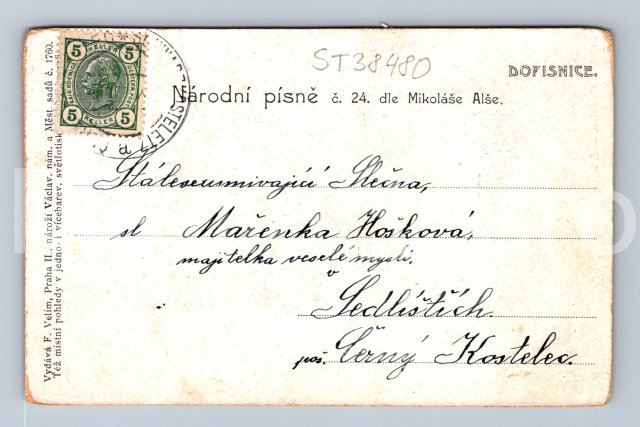 ST38480
DOPISNICE.
5 5
HELLER
5 HELLER 5
Národní písně č. 24. dle Mikoláše Alše.
Stáleseusmívající Slečna,
sl Mařenka Hošková,
majitelka veselé mysli.
v
Sedlištích
poš. Černý Kostelec.
Vydává F. Velim, Praha II., nároží Václav. nám. a Měst. sadů č. 1760.
Též místní pohledy v jedno- i vícebarev. světlotisk